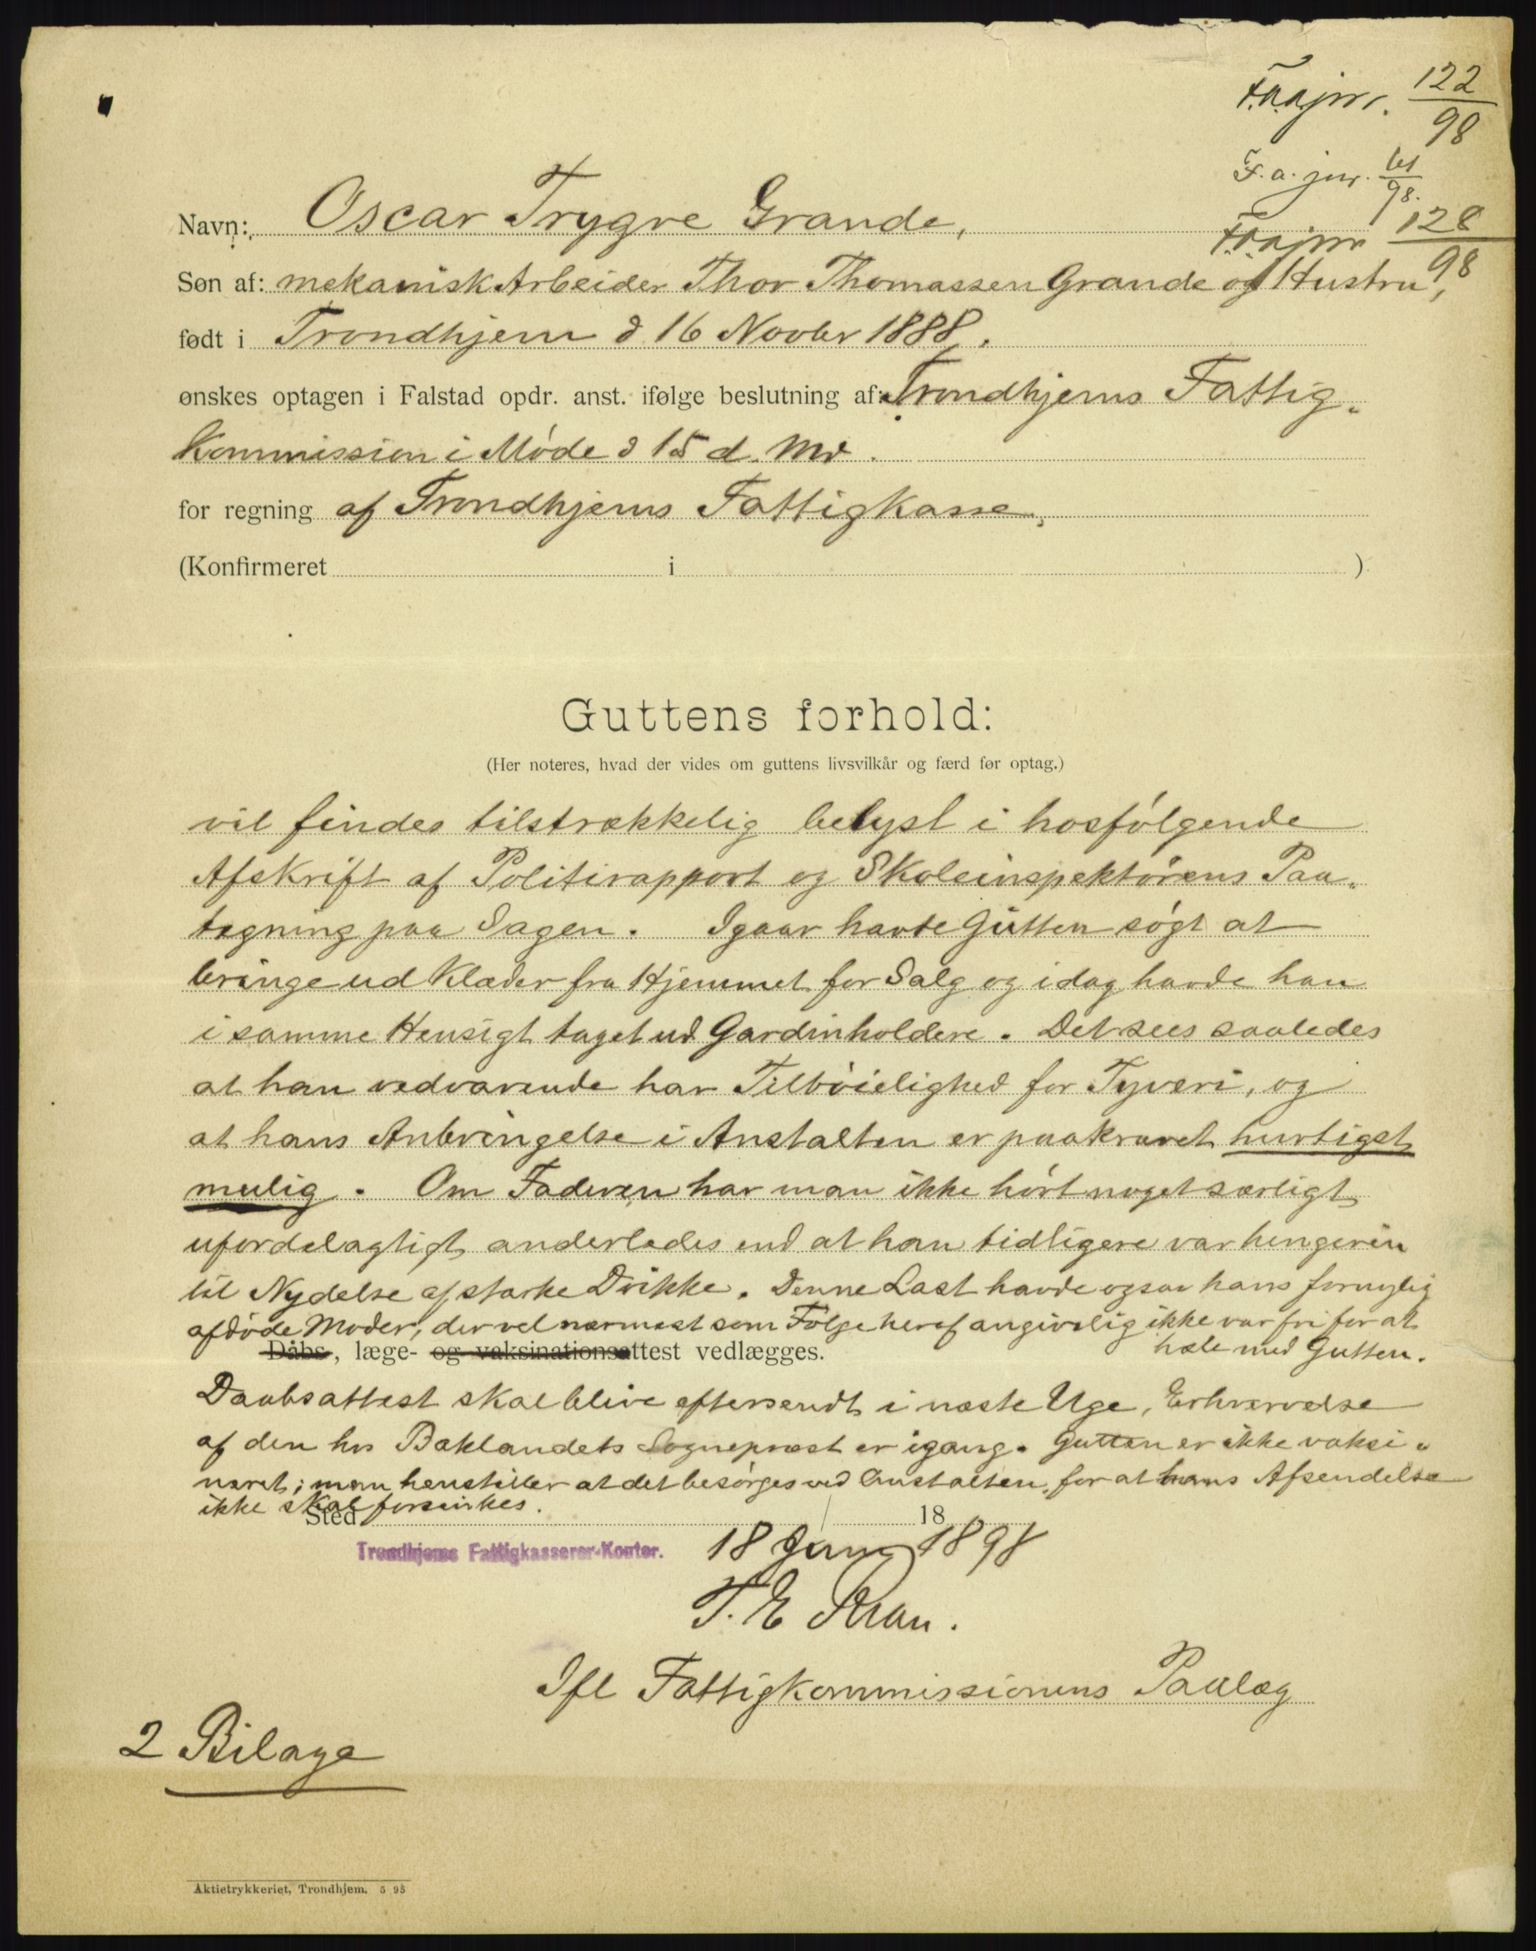 F.a.jnr. 122/98
F.a. jnr. 61/98.
F.a.jnr. 128/98
Navn: Oscar Trygve Grande,
Søn af: mekanisk Arbeider Thor Thomassen Grande og Hustru,
født i Trondhjem d 16 Novbr 1888.
ønskes optagen i Falstad opdr. anst. ifølge beslutning af: Trondhjems Fattig-
kommission i Møde d 15 d. Md.
for regning af Trondhjems Fattigkasse.
(Konfirmeret i )
Guttens forhold:
(Her noteres, hvad der vides om guttens livsvilkår og færd før optag.)
vil findes tilstrækkelig belyst i hosfølgende
Afskrift af Politirapport og Skoleinspektørens Paa-
tegning paa Sagen. Igaar havde Gutten søgt at
bringe ud Klæder fra Hjemmet for Salg og idag havde han
i samme Hensigt taget ud Gardinholdere. Det sees saaledes
at han vedvarende har Tilbøielighed for Tyveri, og
at hans Anbringelse i Anstalten er paakrævet hurtigst
mulig. Om Faderen har man ikke hørt noget særligt
ufordelagtigt anderledes end at han tidligere var hengiven
til Nydelse af stærke Drikke. Denne Last havde ogsaa hans fornylig
afdøde Moder, der vel nærmest som Følge heraf angivelig ikke var fri for at
hæle med Gutten.
Dåbs-, læge- og vaksinationsattest vedlægges.
Daabsattest skal blive eftersendt i næste Uge, Erhvervelse
af den hos Baklandets Sogneprest er igang. Gutten er ikke vaksi-
neret; man henstiller at det besørges ved Anstalten, for at hans Afsendelse
ikke skal forsinkes.
Sted 18
Trondhjems Fattigkasserer-Kontor. 18 Juni 1898
T. E.
Ifl Fattigkommissionens Paalæg
2 Bilage
Aktietrykkeriet, Trondhjem. 5 95